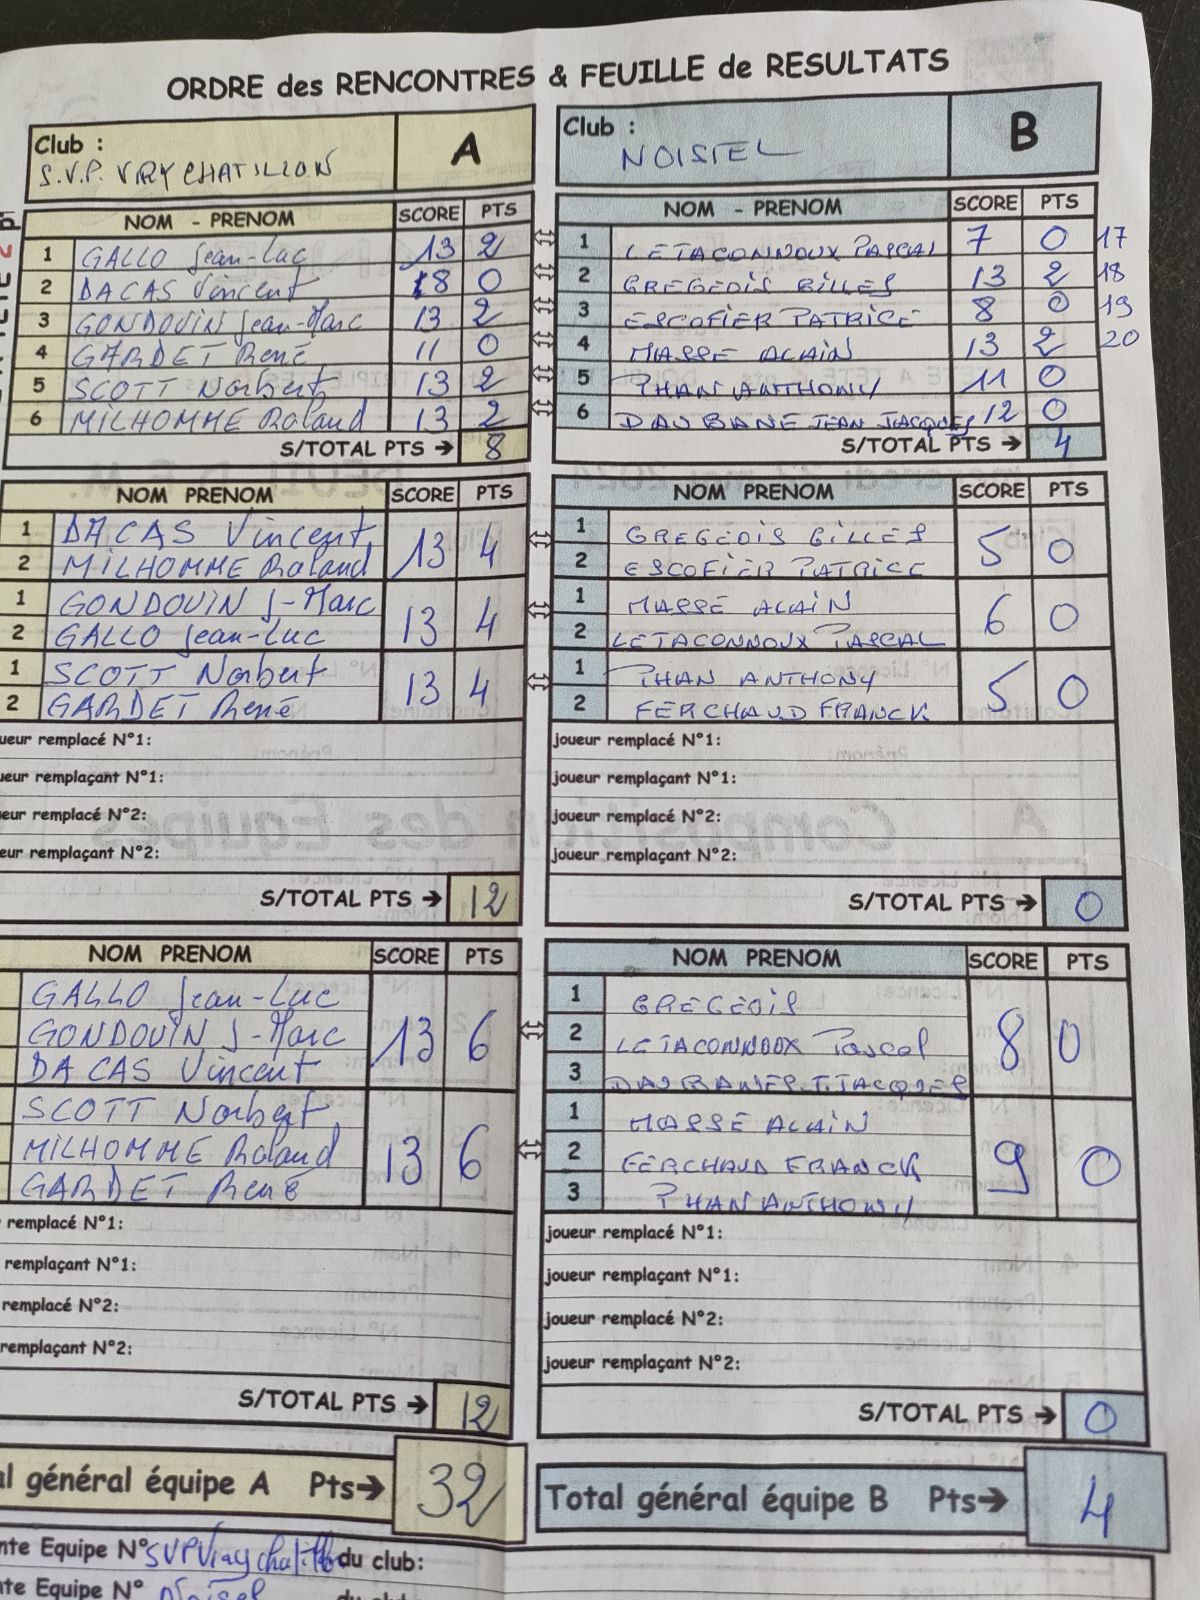 ORDRE des RENCONTRES & FEUILLE de RESULTATS
Club : A
S.V.P. VRY CHATILLON
NOM - PRENOM SCORE PTS
1 GALLO Jean-Luc 13 2
2 DACAS Vincent 8 0
3 GONDOUIN Jean-Marc 13 2
4 GARDET René 11 0
5 SCOTT Norbert 13 2
6 MILHOMME Roland 13 2
S/TOTAL PTS → 8
NOM PRENOM SCORE PTS
1 DACAS Vincent 13 4
2 MILHOMME Roland
1 GONDOUIN J-Marc 13 4
2 GALLO Jean-Luc
1 SCOTT Norbert 13 4
2 GARDET René
ueur remplacé N°1:
ueur remplaçant N°1:
eur remplacé N°2:
eur remplaçant N°2:
S/TOTAL PTS → 12
NOM PRENOM SCORE PTS
GALLO Jean-Luc
GONDOUIN J-Marc 13 6
DACAS Vincent
SCOTT Norbert
MILHOMME Roland 13 6
GARDET René
remplacé N°1:
remplaçant N°1:
remplacé N°2:
remplaçant N°2:
S/TOTAL PTS → 12
al général équipe A Pts→ 32
Club : B
NOISIEL
NOM - PRENOM SCORE PTS
1 LETACONNOUX PASCAL 7 0 17
2 GREGEOIS GILLES 13 2 18
3 ESCOFIER PATRICE 8 0 19
4 MASSE ALAIN 13 2 20
5 PHAN ANTHONY 11 0
6 DAUBANE JEAN JACQUES 12 0
S/TOTAL PTS → 4
NOM PRENOM SCORE PTS
1 GREGEOIS GILLES 5 0
2 ESCOFIER PATRICE
1 MASSE ALAIN 6 0
2 LETACONNOUX PASCAL
1 PHAN ANTHONY 5 0
2 FERCHAUD FRANCK
joueur remplacé N°1:
joueur remplaçant N°1:
joueur remplacé N°2:
joueur remplaçant N°2:
S/TOTAL PTS → 0
NOM PRENOM SCORE PTS
1 GREGEOIS
2 LETACONNOUX Pascal 8 0
3
1 MASSE ALAIN
2 FERCHAUD FRANCK 9 0
3 PHAN ANTHONY
joueur remplacé N°1:
joueur remplaçant N°1:
joueur remplacé N°2:
joueur remplaçant N°2:
S/TOTAL PTS → 0
Total général équipe B Pts→ 4
nte Equipe N° SVP Viry chatillon du club:
nte Equipe N° Noisiel